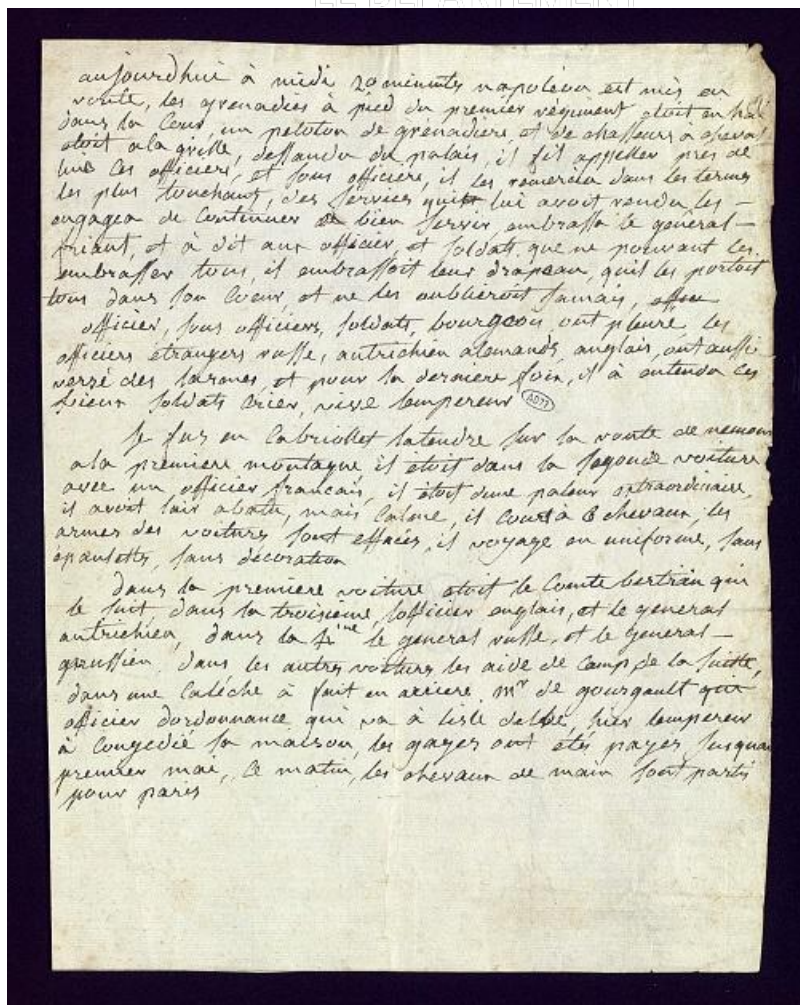 LE DEPARTEMENT
aujourdhui à midi 20 minuttes napoléon est mis en
route, les grenadies à pied du premier régiment etoit en
dans la Cour, un peloton de grenadiers, et de chasseurs a cheval
etoit a la grille, dessandu du palais, il fit appeller pres de
lui ces officiers, et sous officiers, il les remercia dans les termes
les plus touchant, des services quils lui avoit rendu les –
engagea de Continuer de bien servir, embrassa le général –
friant, et à dit aux officier, et soldats, que ne pouvant les
embrasser tous, il embrassoit leur drapeau, quil les portoit
tous dans son Coeur et ne les oublieroit jamais,
officier, sous officiers, soldats, bourgeois, ont pleuré, les
officiers étrangers russe, autrichien alemands, anglais, ont aussi
versé des larmes, et pour la derniere foix, il à entendu ces
vieux soldats Crier, vive lempereur AD77
Je fus en Cabriollet latendre sur la route de nemours
a la premiere montagne il étoit dans la segonde voiture
avec un officier francais, il étoit dune paleur extraordinaire,
il avoit lair abatu, mais Calme, il Court à 6 chevaux, les
armes des voitures sont effacés, il voyage en uniforme, sans
épaulettes, sans décoration
Dans la premiere voiture etoit le Comte bertrán qui
le suit, dans la troisieme, lofficier anglais, et le general
autrichien, dans la 4me le general russe, et le general –
prussien, dans les autres voitures les aide de Camp de la suitte,
dans une Caléche à fait en arriere mr de gourgault qui
officier dordonnance qui va à lisle delbe, hier lempereur
à Congedié sa maison, les gages ont étés payes jusquau
premier mai, Ce matin, les chevaux de main sont partis
pour paris